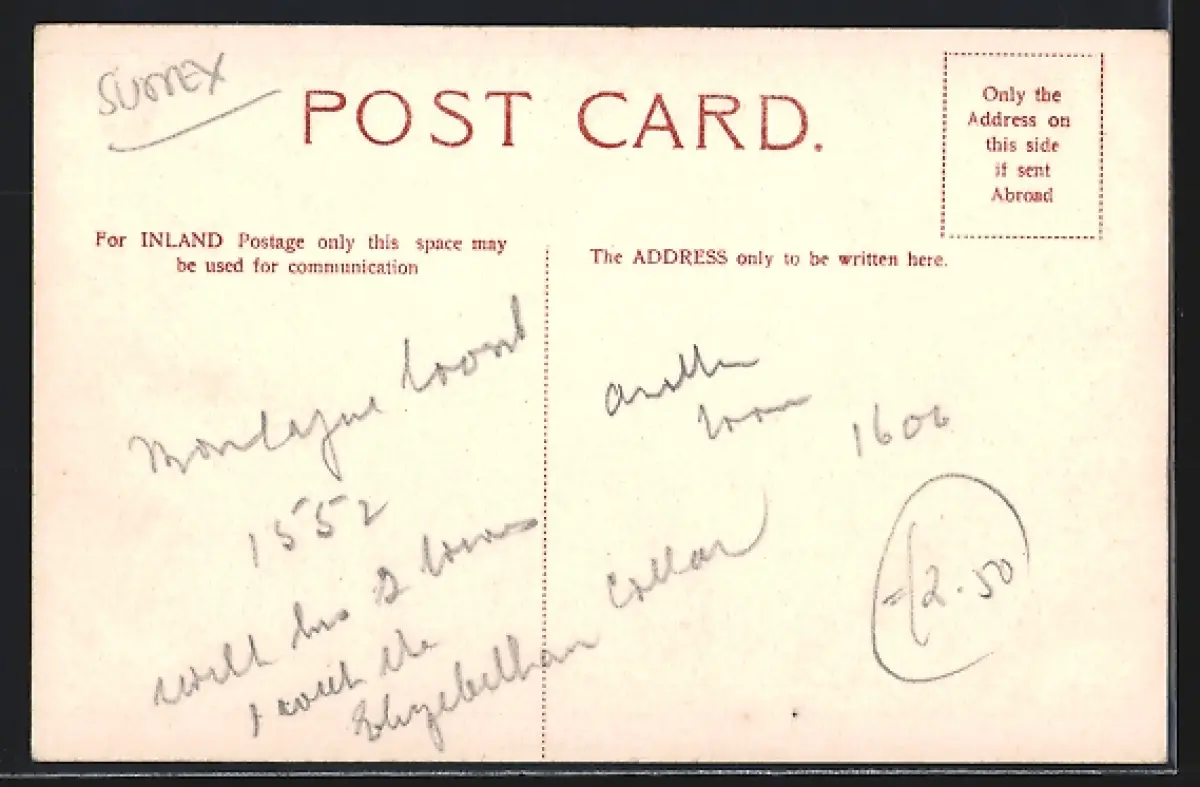 SUSSEX
POST CARD.
Only the
Address on
this side
if sent
Abroad
For INLAND Postage only this space may
be used for communication
The ADDRESS only to be written here.
Montague
1552
with his 2 wives
1 with the
Elizabethan collar
another
1606
2.50